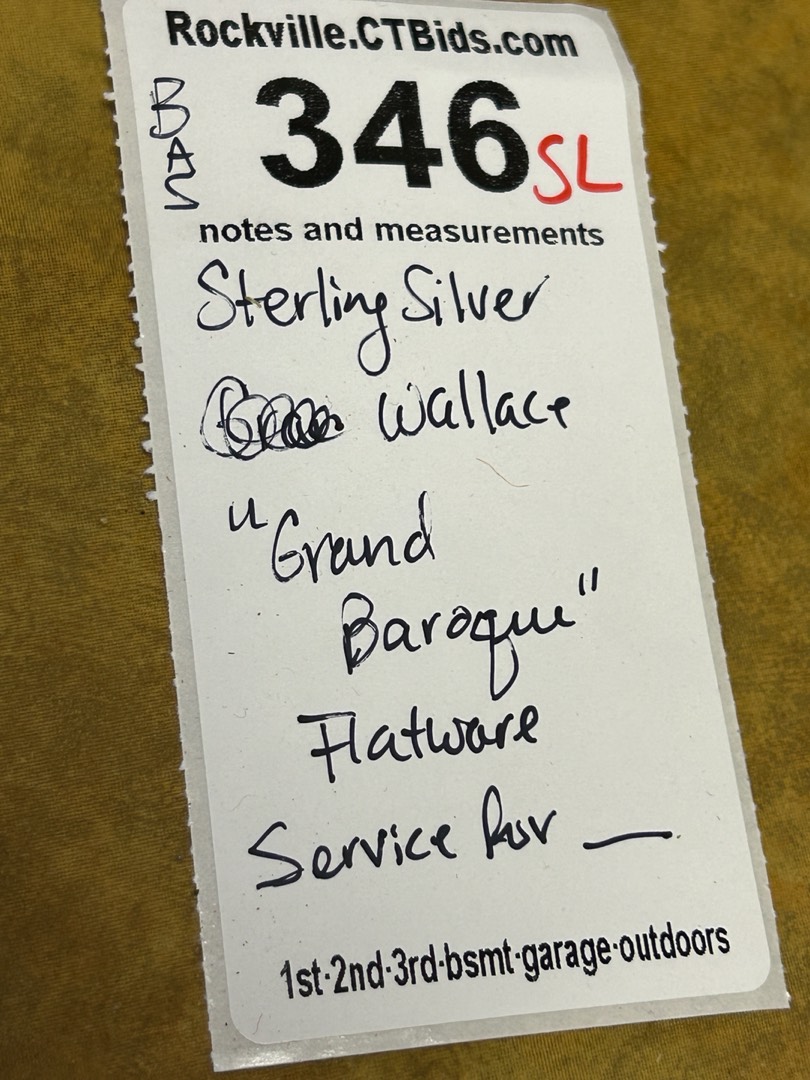 Rockville.CTBids.com
BAS
346 SL
notes and measurements
Sterling Silver
Wallace
"Grand
Baroque"
Flatware
Service for —
1st·2nd·3rd·bsmt·garage·outdoors